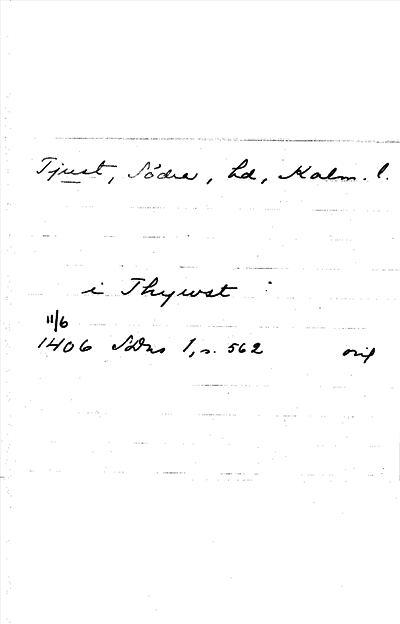 Tjust, Södra, hd, Kalm. l.
i Thywst
11/6
1406 SDns 1, s. 562 orig